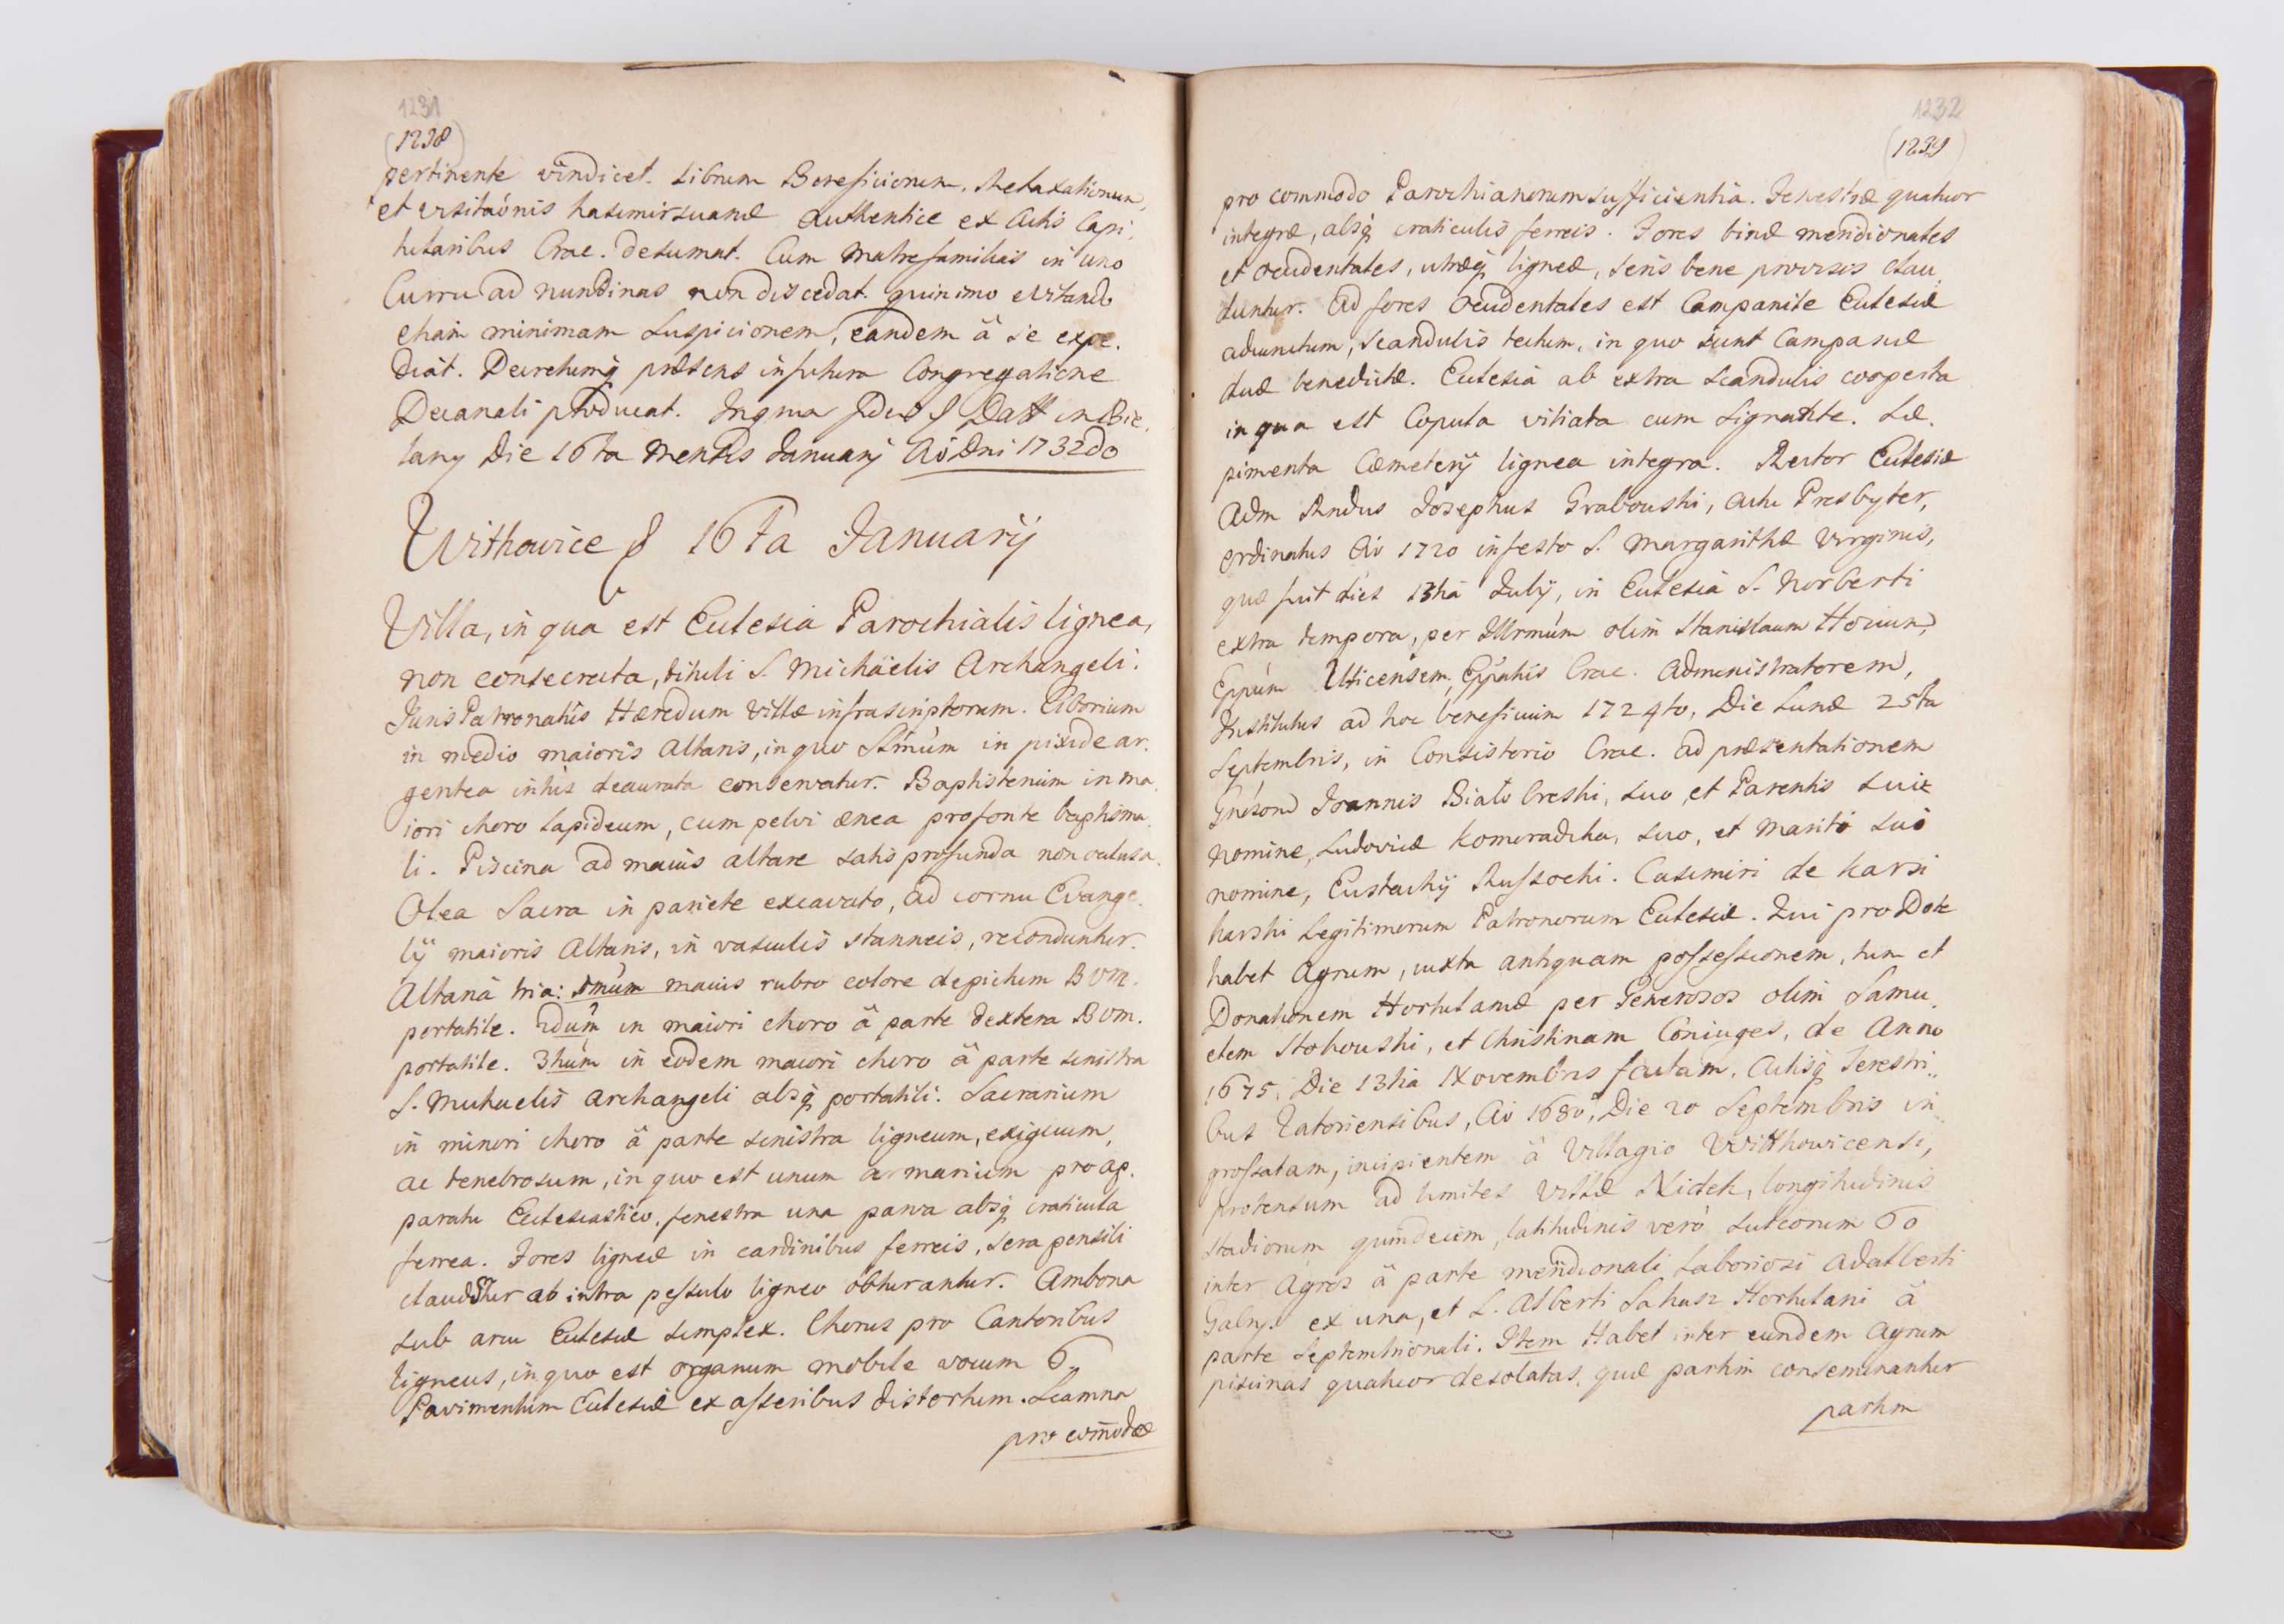 1231
(1238)
pertinente vindicet. Librum Beneficiorum, Retaxationum,
et visitaónis kazimirzuanæ authentice ex Actis Capi,
tularibus Crac. desumat. Cum Matrefamilias in uno
Curru ad nundinas non discedat. quinimo evitando
etiam minimam Suspicionem, eandem â se expe.
diat. Decretumq præsens in futura Congregatione
Decanali producat. In qrua fides Datt in Bie,
lany Die 16ta Mensis Januarij Aó Dni 1732do
Withowice 16ta Januarij
Villa, in qua est Ecclesia Parochialis lignea,
non consecrata, tituli S. Michäelis Archangeli.
Juris Patronatûs Hæredum Villæ infrascriptorum. Ciborium
in medio maioris Altaris, in quo Ssmúm in pixide ar.
gentea intus deaurata conservatur. Baptisterium in ma,
iori choro Lapideum, cum pelvi ænea pro fonte baptisma.
li. Piscina ad maius altare satis profunda non occlusa.
Olea Sacra in pariete excavato, ad cornu Evange.
lÿ maioris Altaris, in vasculis stanneis, reconduntur.
Altaria tria: 1mum maius rubro colore depictum BVM.
portatile. 2dum in maiori choro â parte dextera BVM.
portatile. 3tium in eodem maiori choro â parte sinistra
S. Michaelis Archangeli absq portatili. Sacrarium
in minori choro â parte sinistra ligneum, exiguum,
ac tenebrosum, in quo est unum armarium pro ap.
paratu Ecclesiastico, fenestra una parva absq craticula
ferrea. Fores ligneæ in cardinibus ferreis, sera pensili
clauduntur ab intra pessulo ligneo obturantur. Ambona
sub arcu Ecclesiæ simplex. Chorus pro Cantoribus
ligneus, in quo est organum mobile vocum 6.
Pavimentum Ecclesiæ ex asseribus distortum. Scamna
pro com̄odo
1232
(1239)
pro commodo Parochianorum sufficientia. Fenestræ quatuor
integræ, absq craticulis ferreis. Fores binæ meridionales
et occidentales, utræq ligneæ, seris bene provisis clau,
duntur. Ad fores occidentales est Campanile Ecclesiæ
adiunctum, scandulis tectum, in quo sunt Campanæ
duæ benedictæ. Ecclesia ab extra scandulis cooperta
in qua est Copula vitiata cum Signante. Sæ.
pimenta Cæmeterÿ lignea integra. Rector Ecclesiæ
Adm Rndus Josephus Grabowski, actu Presbyter,
ordinatus Aó 1720 in festo S. Margarithæ Virginis,
quæ fuit dies 13tia Julÿ, in Ecclesia S. Norberti
extra tempora, per Illrmúm olim Stanislaum Hosiun,
Eppúm Uticensem, Eppatûs Crac. Administratorem,
Institutus ad hoc beneficium 1724to, Die Lunæ 25ta
Septembris, in Consistorio Crac. ad præsentationem
Gnosord Joannis Biało breski, suo, et Parentis suiæ
nomine, Ludovicæ Komoradzka, suo, et Mariti sui
nomine, Eustachÿ Russochi. Casimiri de karsi
karski Legitimorum Patronorum Ecclesiæ. Qui pro Dote
habet Agrum, iuxta antiquam possessionem, tum et
Donationem Hortulanæ per Generosos olim Samu,
elem Stokowski, et Christinam Coniuges, de Anno
1675. Die 13tia Novembris factam. Actisq Terestri,,
bus Zatoriensibus, Aó 1680, Die 20 Septembris in
grossatam, incipientem â Villagio Witthowicensi,
protensum ad limites Villæ Nidek, longitudinis
stadiorum quindecim, latitudinis veró sulcorum 60
inter Agros â parte meridionali Laboriosi Adalberti
Galus ex una, et L. Alberti Sakusz Hortulani â
parte Septemtrionali. Item Habet inter eundem Agrum
piscinas quatuor desolatas, quæ partim conseminantur
partim